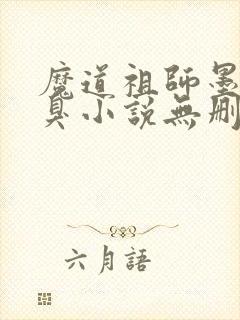 魔道祖師墨
臭小說無刪
六月語